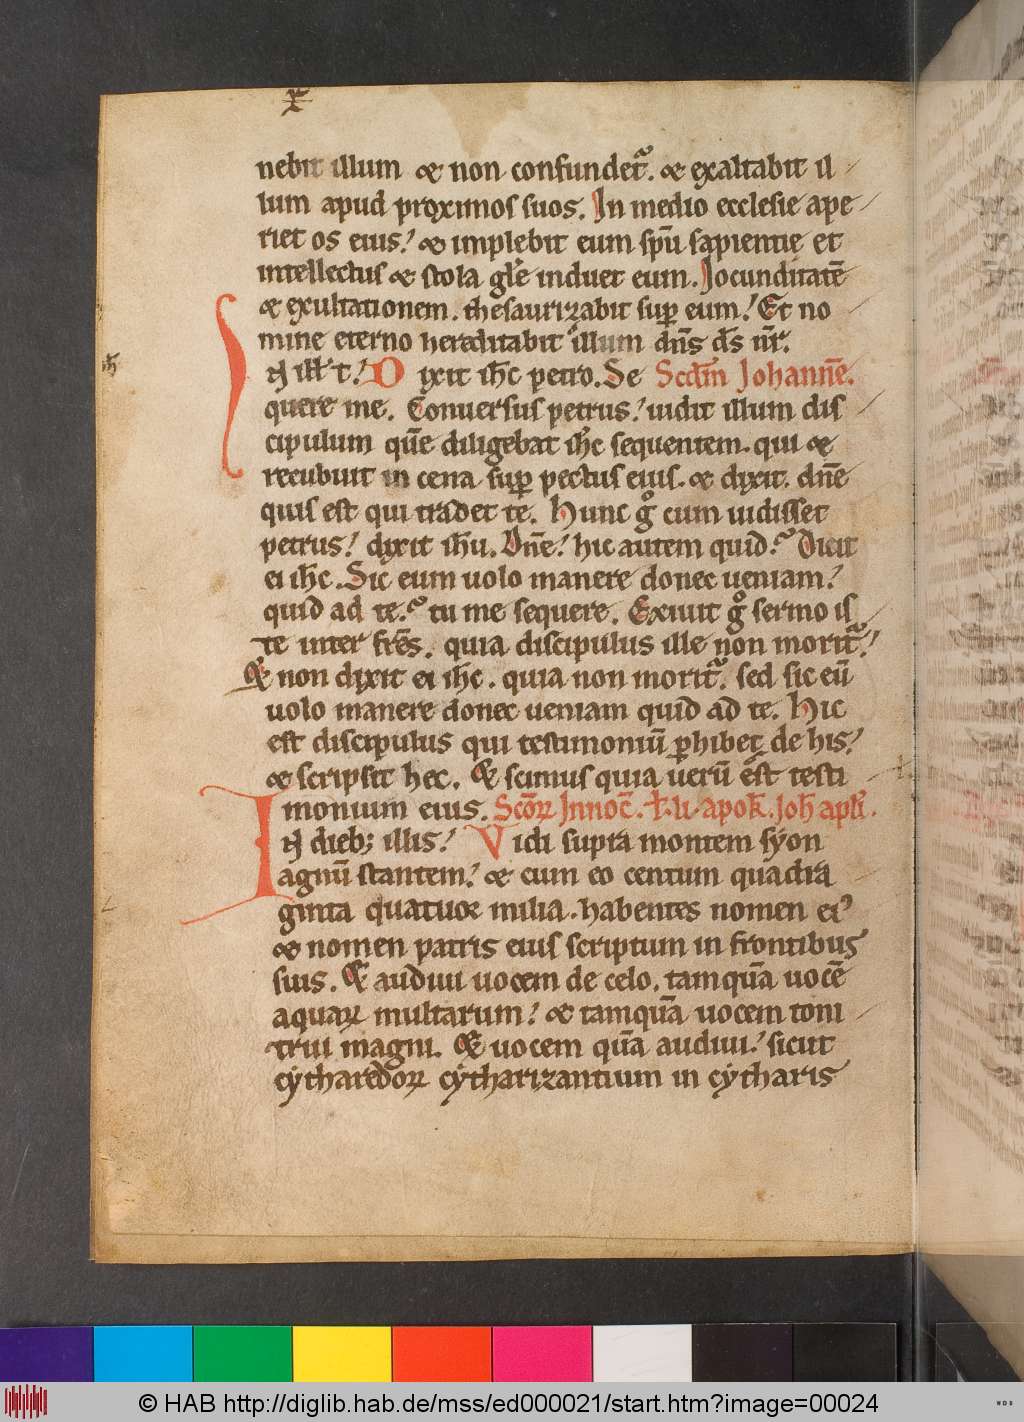 nebit illum & non confundet᷑. & exaltabit il
lum apud proximos suos. In medio ecclesie ape
riet os eius. & implebit eum spū sapientię et
intellectus & stola glē induet eum. Jocunditatē
& exultationem. thesaurizabit suꝑ eum. Et no
mine eterno hereditabit illum dn̄s ds̄ nr̄.
In ill t̄. Dixit ih̄c petro. Se Scd̄m Johann̄e.
quere me. Conuersus petrus. uidit illum dis
cipulum quē diligebat ih̄c sequentem. qui &
recubuit in cena suꝑ pectus eius. & dixit. dn̄e
quis est qui tradet te. Hunc gͦ cum uidisset
petrus. dixit ih̄u. Dn̄e. hic autem quid. Dicit
ei ih̄c. Sic eum uolo manere donec ueniam.
quid ad te. tu me sequere. Exiuit gͦ sermo is
te inter fr̄es. quia discipulus ille non morit᷑.
Et non dixit ei ih̄c. quia non morit᷑. sed sic eū
uolo manere donec ueniam quid ad te. Hic
est discipulus qui testimoniū ꝑhibet de his.
& scripsit hec. Et scimus quia uerū est testi
monium eius. Sc̄oꝝ Innoc̄. ł. li. apok̄. joh̄ apl̄i.
In dieb; illis. Vidi supra montem sẏon
agnū stantem. & cum eo centum quadra
ginta quatuor milia. habentes nomen ei᾽
& nomen patris eius scriptum in frontibus
suis. Et audiui uocem de celo. tamquā uocē
aquaꝝ multarum. & tamquā uocem toni
trui magni. Et uocem quā audiui. sicut
cẏtharedoꝝ cẏtharizantium in cẏtharis
© HAB http://diglib.hab.de/mss/ed000021/start.htm?image=00024